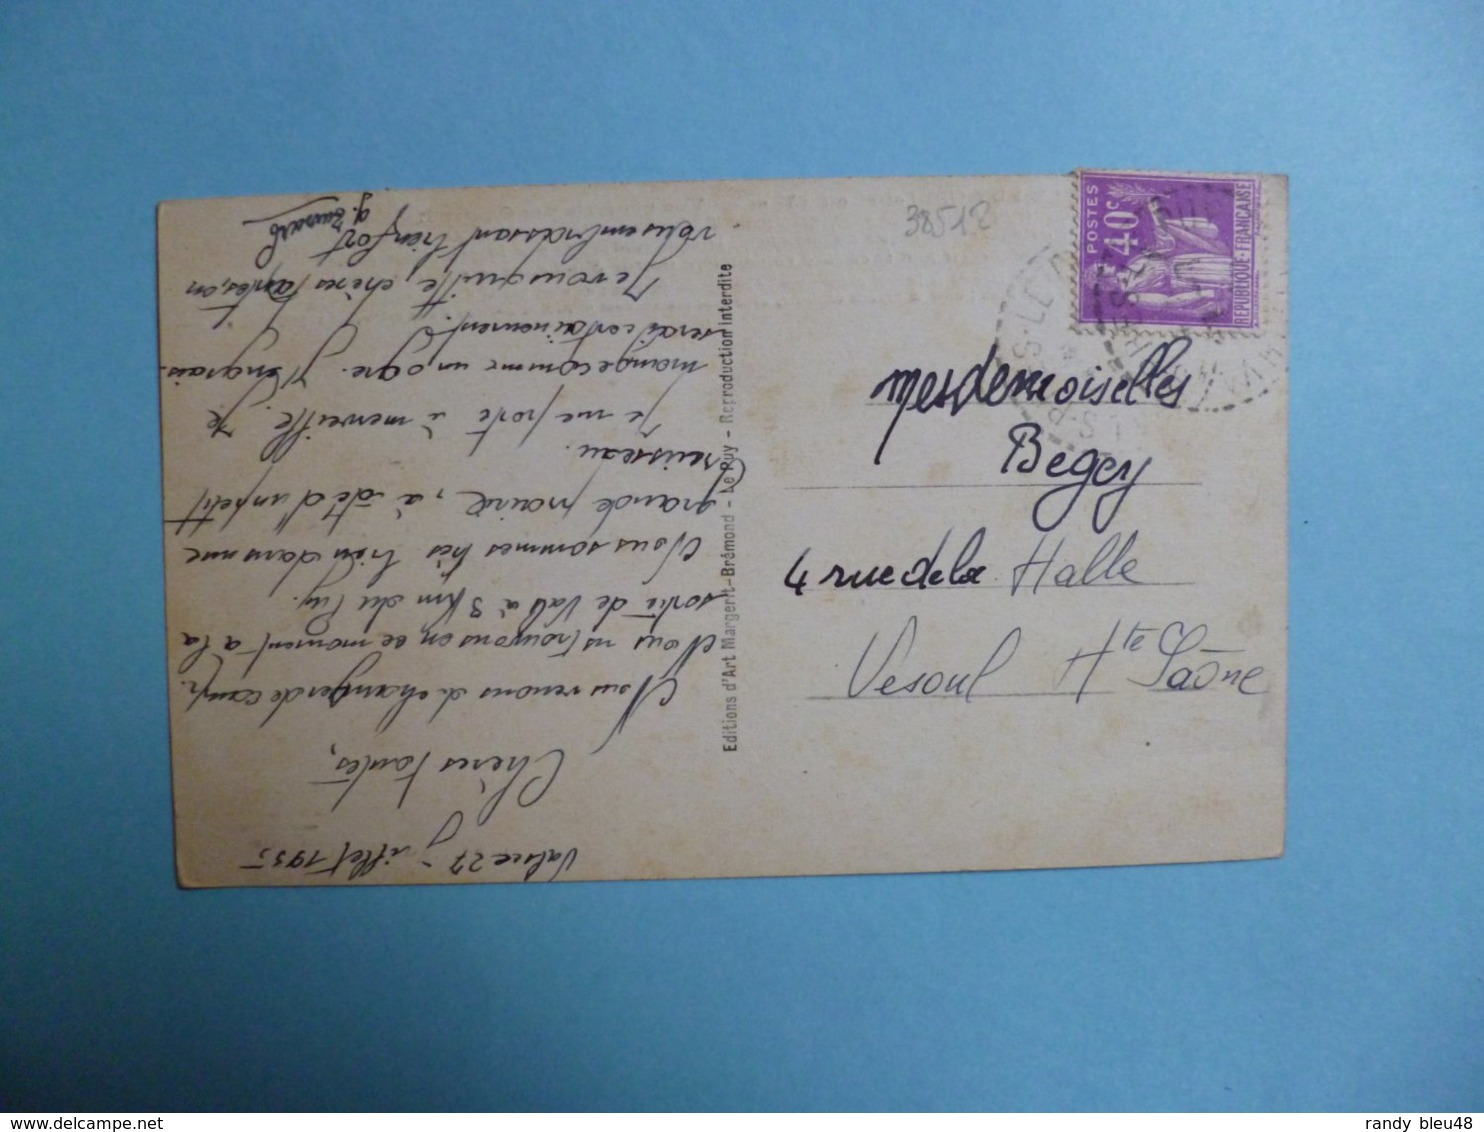 Valsée 27 juillet 1935
Chères tantes,
Nous venons de changer de camp.
Nous ns trouvons en ce moment à la
sortie de Vals à 3 Km du Puy.
Nous sommes très bien dans une
grande prairie, à côté d'un petit
ruisseau.
Je me porte à merveille. Je
mange comme un ogre. J'engrais-
serai certainement.
Je vous quitte, chères tantes, en
vous embrassant bien fort
Editions d'Art Margerit-Brémond - Le Puy - Reproduction interdite
38512
POSTES
40c
REPUBLIQUE FRANÇAISE
Mesdemoiselles
Begey
4 rue de la Halle
Vesoul Hte Saône
randy bleu48